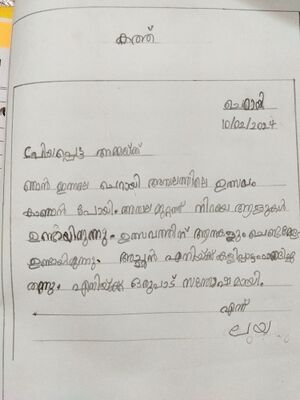 കത്ത്
ചെറായി
10/02/2024
പ്രിയപ്പെട്ട അമ്മയ്ക്ക്
ഞാൻ ഇന്നലെ ചെറായി അമ്പലത്തിലെ ഉത്സവം
കാണാൻ പോയി. അമ്പലമുറ്റത്ത് നിറയെ ആളുകൾ
ഉണ്ടായിരുന്നു. ഉത്സവത്തിന് ആനകളും ചെണ്ടമേളവും
ഉണ്ടായിരുന്നു. അച്ഛൻ എനിയ്ക്ക് കളിപ്പാട്ടം വാങ്ങിച്ചു
തന്നു. എനിയ്ക്ക് ഒരുപാട് സന്തോഷമായി.
എന്ന്
ലയ